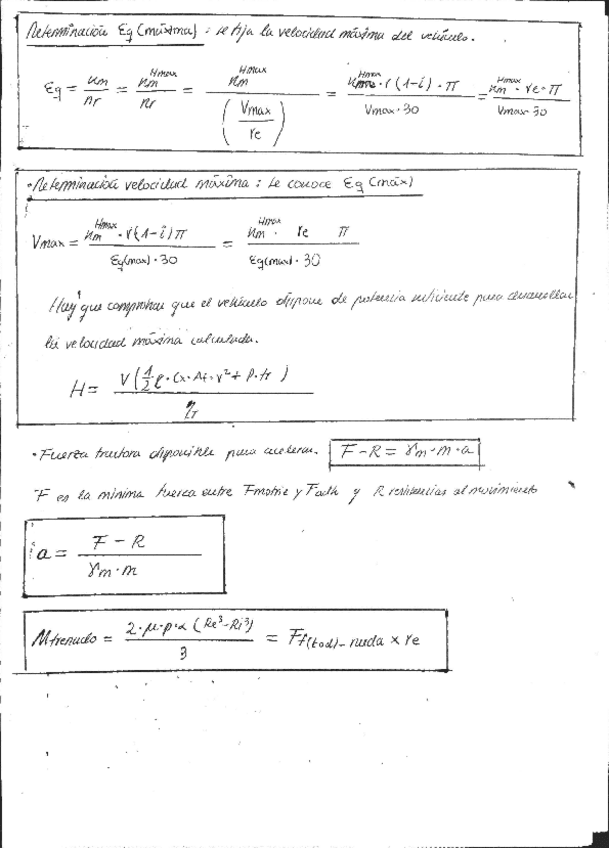 Determinación Eg (máxima) : se fija la velocidad máxima del vehículo.
Eg = nm / nr = nm^Hmax / nr = nm^Hmax / (Vmax / re) = nm^Hmax · r (1-i) · π / Vmax · 30 = nm^Hmax · re · π / Vmax · 30
· Determinación velocidad máxima : se conoce Eg (máx)
Vmax = nm^Hmax · r (1-i) π / Eg(max) · 30 = nm^Hmax · re π / Eg(max) · 30
Hay que comprobar que el vehículo dispone de potencia suficiente para desarrollar
la velocidad máxima calculada.
H = V (1/2 ρ · Cx · Af · v² + P · fr ) / ηT
· Fuerza tractora disponible para acelerar. F - R = γm · m · a
F es la mínima fuerza entre Fmotriz y Fadh y R resistencias al movimiento
a = F - R / γm · m
Mfrenado = 2 · μ · p · α (Re³ - Ri³) / 3 = Ff(tod) - rueda × re